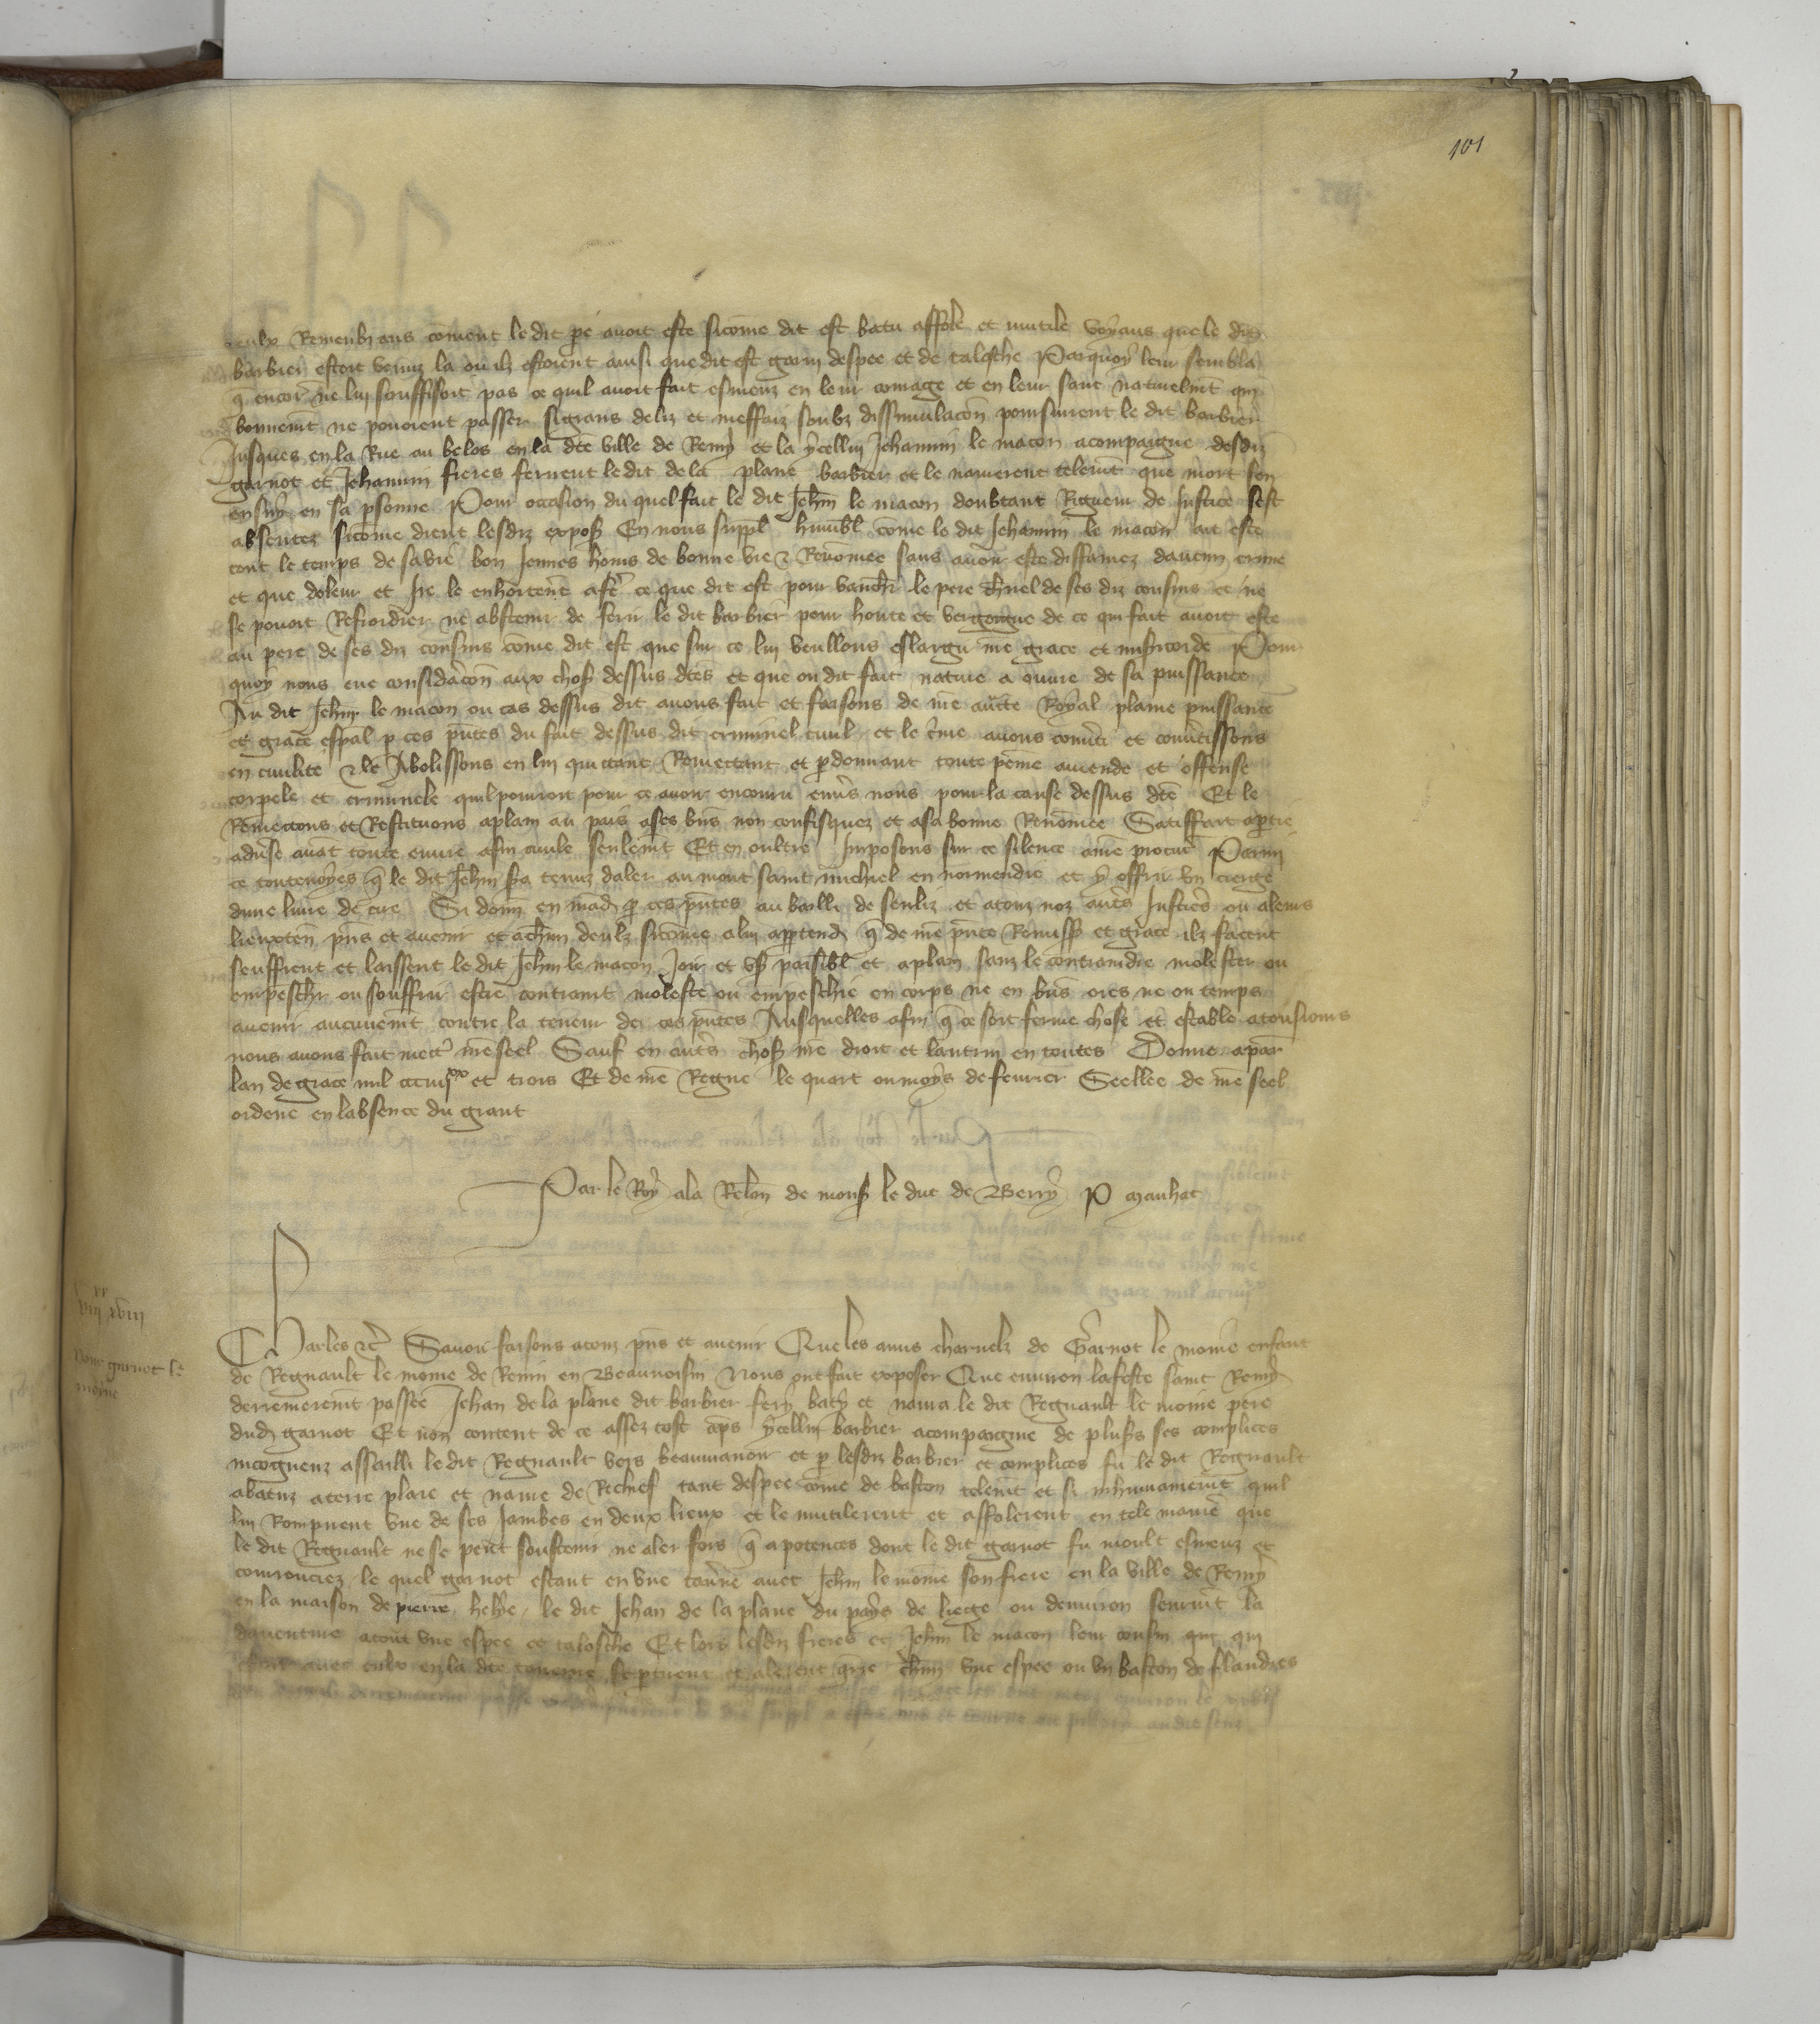 101
eulx Remenbrans coment le dit pe auoit este sicome dit est batu affole et mutile voyans que le dit
barbier estoit venuz la ou ilz estoient ainsi que dit est garni despee et de talosche Parquoy leur sembla
q encor ne lui souffisoit pas ce quil auoit fait esmeuz en leur corage et en leur sanc naturelmt qui
bonnemt ne pouoient passer si grans deliz et meffaiz soubz dissimulacon poursuirent le dit barbier
Jusques en la Rue au belos en la dte ville de Remy et la ycellui Jehannin le macon acompaigne desdiz
garnot et Jehannin freres ferirent le dit de la plane barbier et le naurerent telemt que mort sen
ensuy en sa psonne Pour occasion du quel fait le dit Jehn le macon doubtant Rigueur de Justice sest
absentez sicome dient lesdiz expos En nous suppl humbl come le dit Jehannin le macon ait este
tout le temps de sa vie bon Jennes homs de bonne vie & Renomee sans auoir este diffamez daucun crime
et que doleur et Ire le enhorterent a fe ce que dit est pour vencher le pere charnel de ses diz cousins et ne
se pouoit Refroidier ne abstenir de ferir le dit barbier pour honte et vergongne de ce qui fait auoit este
au pere de ses diz cousins come dit est que sur ce lui veullons eslargir nre grace et misicorde Pour
quoy nous eue consideracon aux choses dessus dtes et que ou dit fait nature a ouure de sa puissance
Au dit Jehn le macon ou cas dessus dit auons fait et faisons de nre aucte Royal plaine puissance
et grace espal p ces pntes du fait dessus dit criminel ciuil et le cime auons conuti et conutissons
en ciuilite & le Abolissons en lui quictant Remectant et pdonnant toute peine amende et offense
corpele et criminele quil pourroit pour ce auoir encouru enuers nous pour la cause dessus dte Et le
Remectons et Restituons a plain au pais a ses bns non confisquez et a sa bonne Renomee Satiffact a ptie
aduse auat toute euure a fin ciuile seulemt Et en oultre Imposons sur ce silence a nre procur Parmi
ce toutevoyes q le dit Jehn sa tenuz daler au mont saint michiel en normendie et y offrir vn cierge
dune liure de cire Si donn en mad p ces pntes au bailli de senliz et a touz noz autes Justices ou a leurs
lieuxten pns et auenir et a chun deulz sicome a lui appartend q de nre pnte Remiss et grace ilz facent
seuffrent et laissent le dit Jehn le macon Joir et us paisibl et a plain sanz le contraindre molester ou
empescher ou souffrir estre contraint moleste ou empeschie en corps ne en bns ores ne ou temps
auenir aucunemt contre la teneur de ces pntes Ausquelles afin q ce soit ferme chose et estable a tousiours
nous auons fait mectre nre seel Sauf en autes choses nre droit et lautrui en toutes Donne a par
lan de grace mil ccciiijxx et trois Et de nre Regne le quart ou moys de feurier Seellee de nre seel
ordene en labsence du grant
Par le Roy a la Relon de mons le duc de Berry P manhac
viiixx xviii
pour garnot le
moine
Charles etc Sauoir faisons a touz pns et auenir Que les amis charnelz de Garnot le moine enfant
de Regnault le moine de Remi en Beauuoisin Nous ont fait exposer Que enuiron la feste saint Remy
derrenieremt passee Jehan de la plane dit barbier fery baty et naura le dit Regnault le moine pere
dud garnot Et non content de ce assez tost aps ycellui barbier acompaigne de plus ses complices
incogneuz assailli le dit Regnault vers beaumanoir et p lesdiz barbier et complices fu le dit Regnault
abatuz a terre plaie et naure de Rechief tant despee come de baston telemt et si inhumainemt quil
lui Rompirent vne de ses Jambes en deux lieux et le mutilerent et affolerent en tele manie que
le dit Regnault ne se peut soustenir ne aler fors q a potences dont le dit garnot fu moult esmeuz et
courrouciez le quel garnot estant en vne tauerne auec Jehn le moine son frere en la ville de Remy
en la maison de pierre helye le dit Jehan de la plane du pays de liege ou denuiron seuruit la
dauenture atout vne espee et talosche Et lors lesdiz freres et Jehn le macon leur cousin qui qui
estoit auec eulx en la dte tauerne se ptirent et alerent querre chun vne espee ou vn baston de flandres